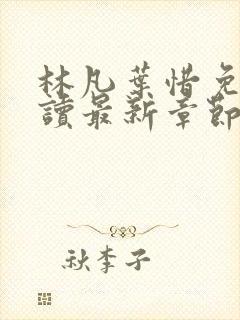 林凡葉惜免
讀最新章節
秋李子